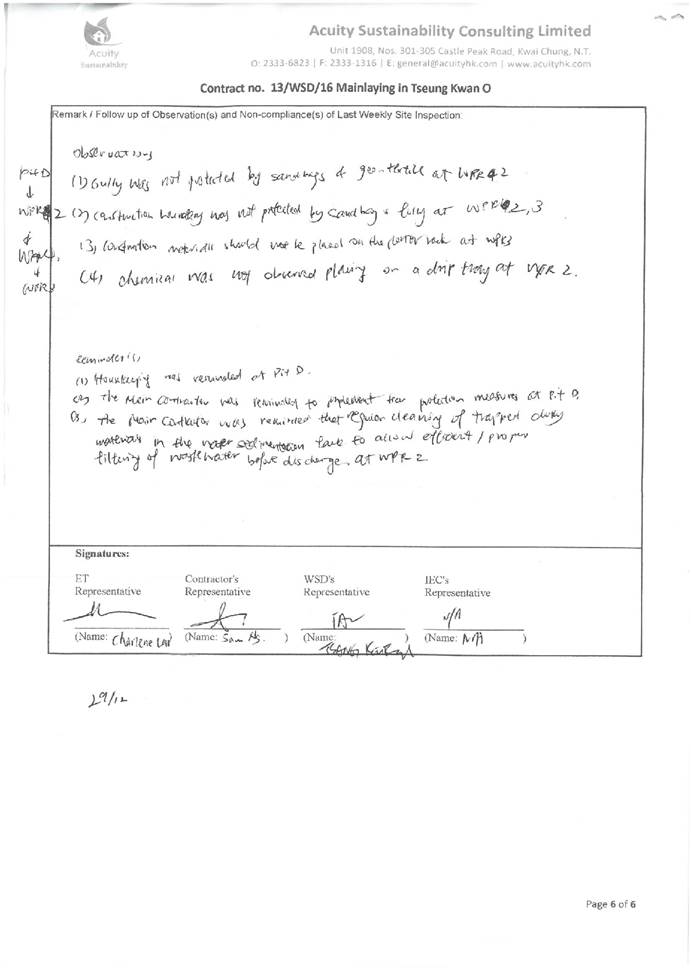 Acuity
Sustainability
Acuity Sustainability Consulting Limited
Unit 1908, Nos. 301-305 Castle Peak Road, Kwai Chung, N.T.
O: 2333-6823 | F: 2333-1316 | E: general@acuityhk.com | www.acuityhk.com
Contract no. 13/WSD/16 Mainlaying in Tseung Kwan O
Remark / Follow up of Observation(s) and Non-compliance(s) of Last Weekly Site Inspection:
Observations
Pit D
↓
WPR 2
(1) Gully was not protected by sandbags & geo-textile at WPR 2
(2) Construction boundary was not protected by sandbag & at WPR 2, 3
(3) Construction materials should not be placed on the at WPR3
(4) chemical was not observed placing on a drip tray at WPR 2.
Reminder(s)
(1) Housekeeping was reminded at Pit D.
(2) The Main Contractor was reminded to implement tree protection measures at Pit D.
(3) The Main Contractor was reminded that regular cleaning of trapped
materials in the water sedimentation tank to allow efficient / proper
filtering of wastewater before discharge. at WPR 2
Signatures:
ET
Representative
Contractor's
Representative
WSD's
Representative
IEC's
Representative
N/A
(Name: Charlene Lai
(Name: Sam Ng. )
(Name: )
(Name: N/A )
29/12
Page 6 of 6